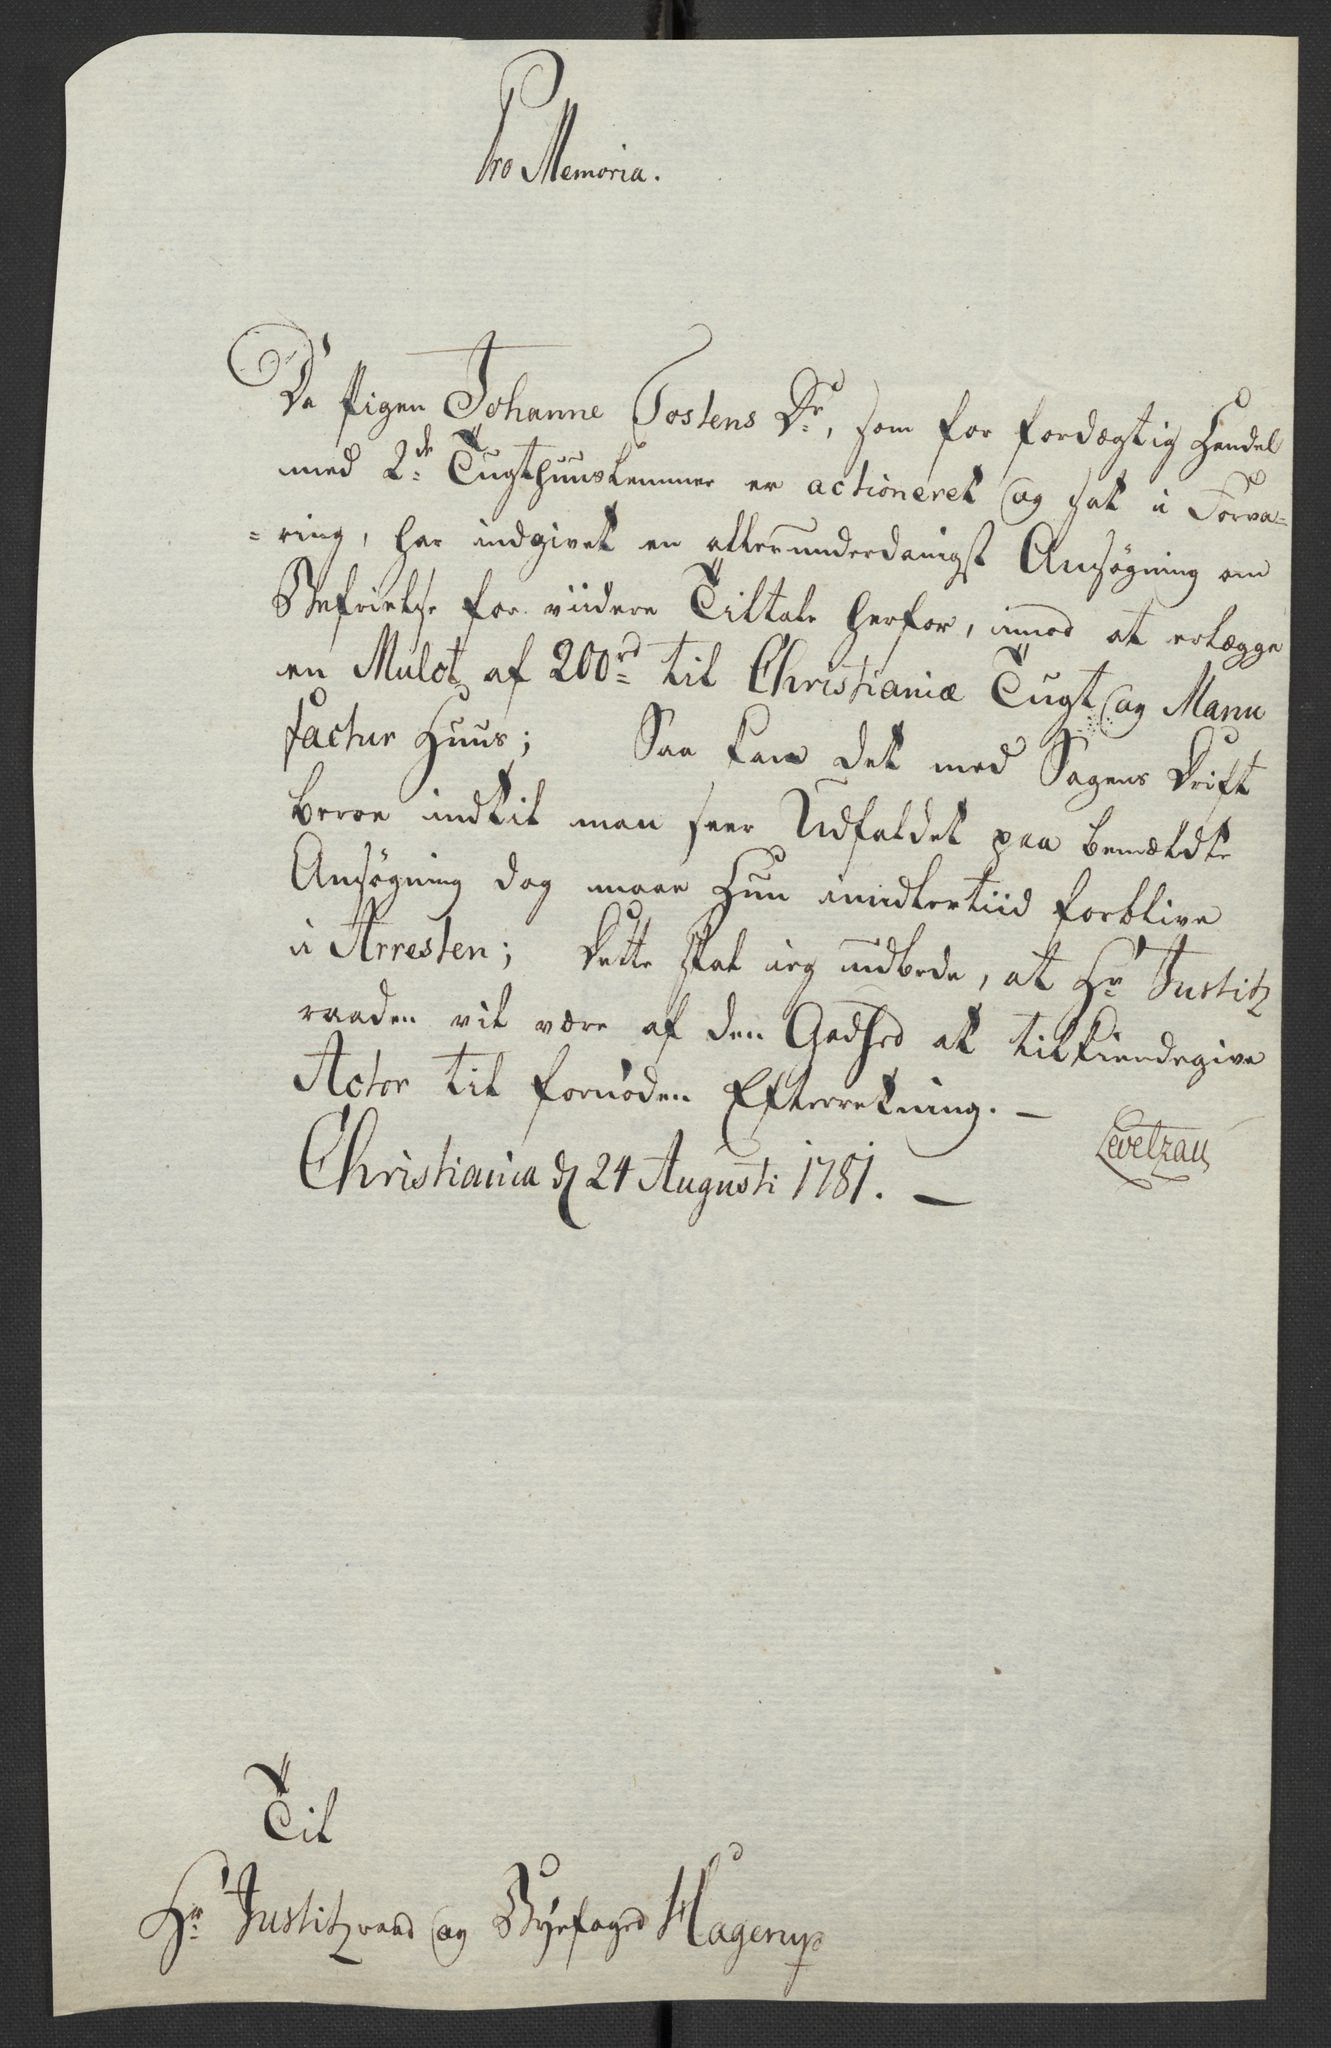 Pro Memoria.
Da Pigen Johanne Tostens Dr, som for fordægtig Handel
med 2de Tugthuuslemmer er actioneret og sat i Forva=
=ring, har indgivet en allerunderdanigst Ansøgning om
Befrielse for viidere Tiltale herfor, imod at erlægge
en Mulct af 200rd til Christianiæ Tugt og Manu
factur Huus; Saa kand det med Sagens Drift
beroe indtil man seer Udfaldet paa bemældte
Ansøgning dog maae Hun imidlertiid forblive
i Arresten; Dette skal ieg udbede, at Hr Justitz
raaden vil være af den Godhed at tilkiendegive
Actor til fornøden Efterretning. —
Levetzau
Christiania d 24 Augusti 1781. —
Til
Hr Justitzraad og Byefoged Hagerup